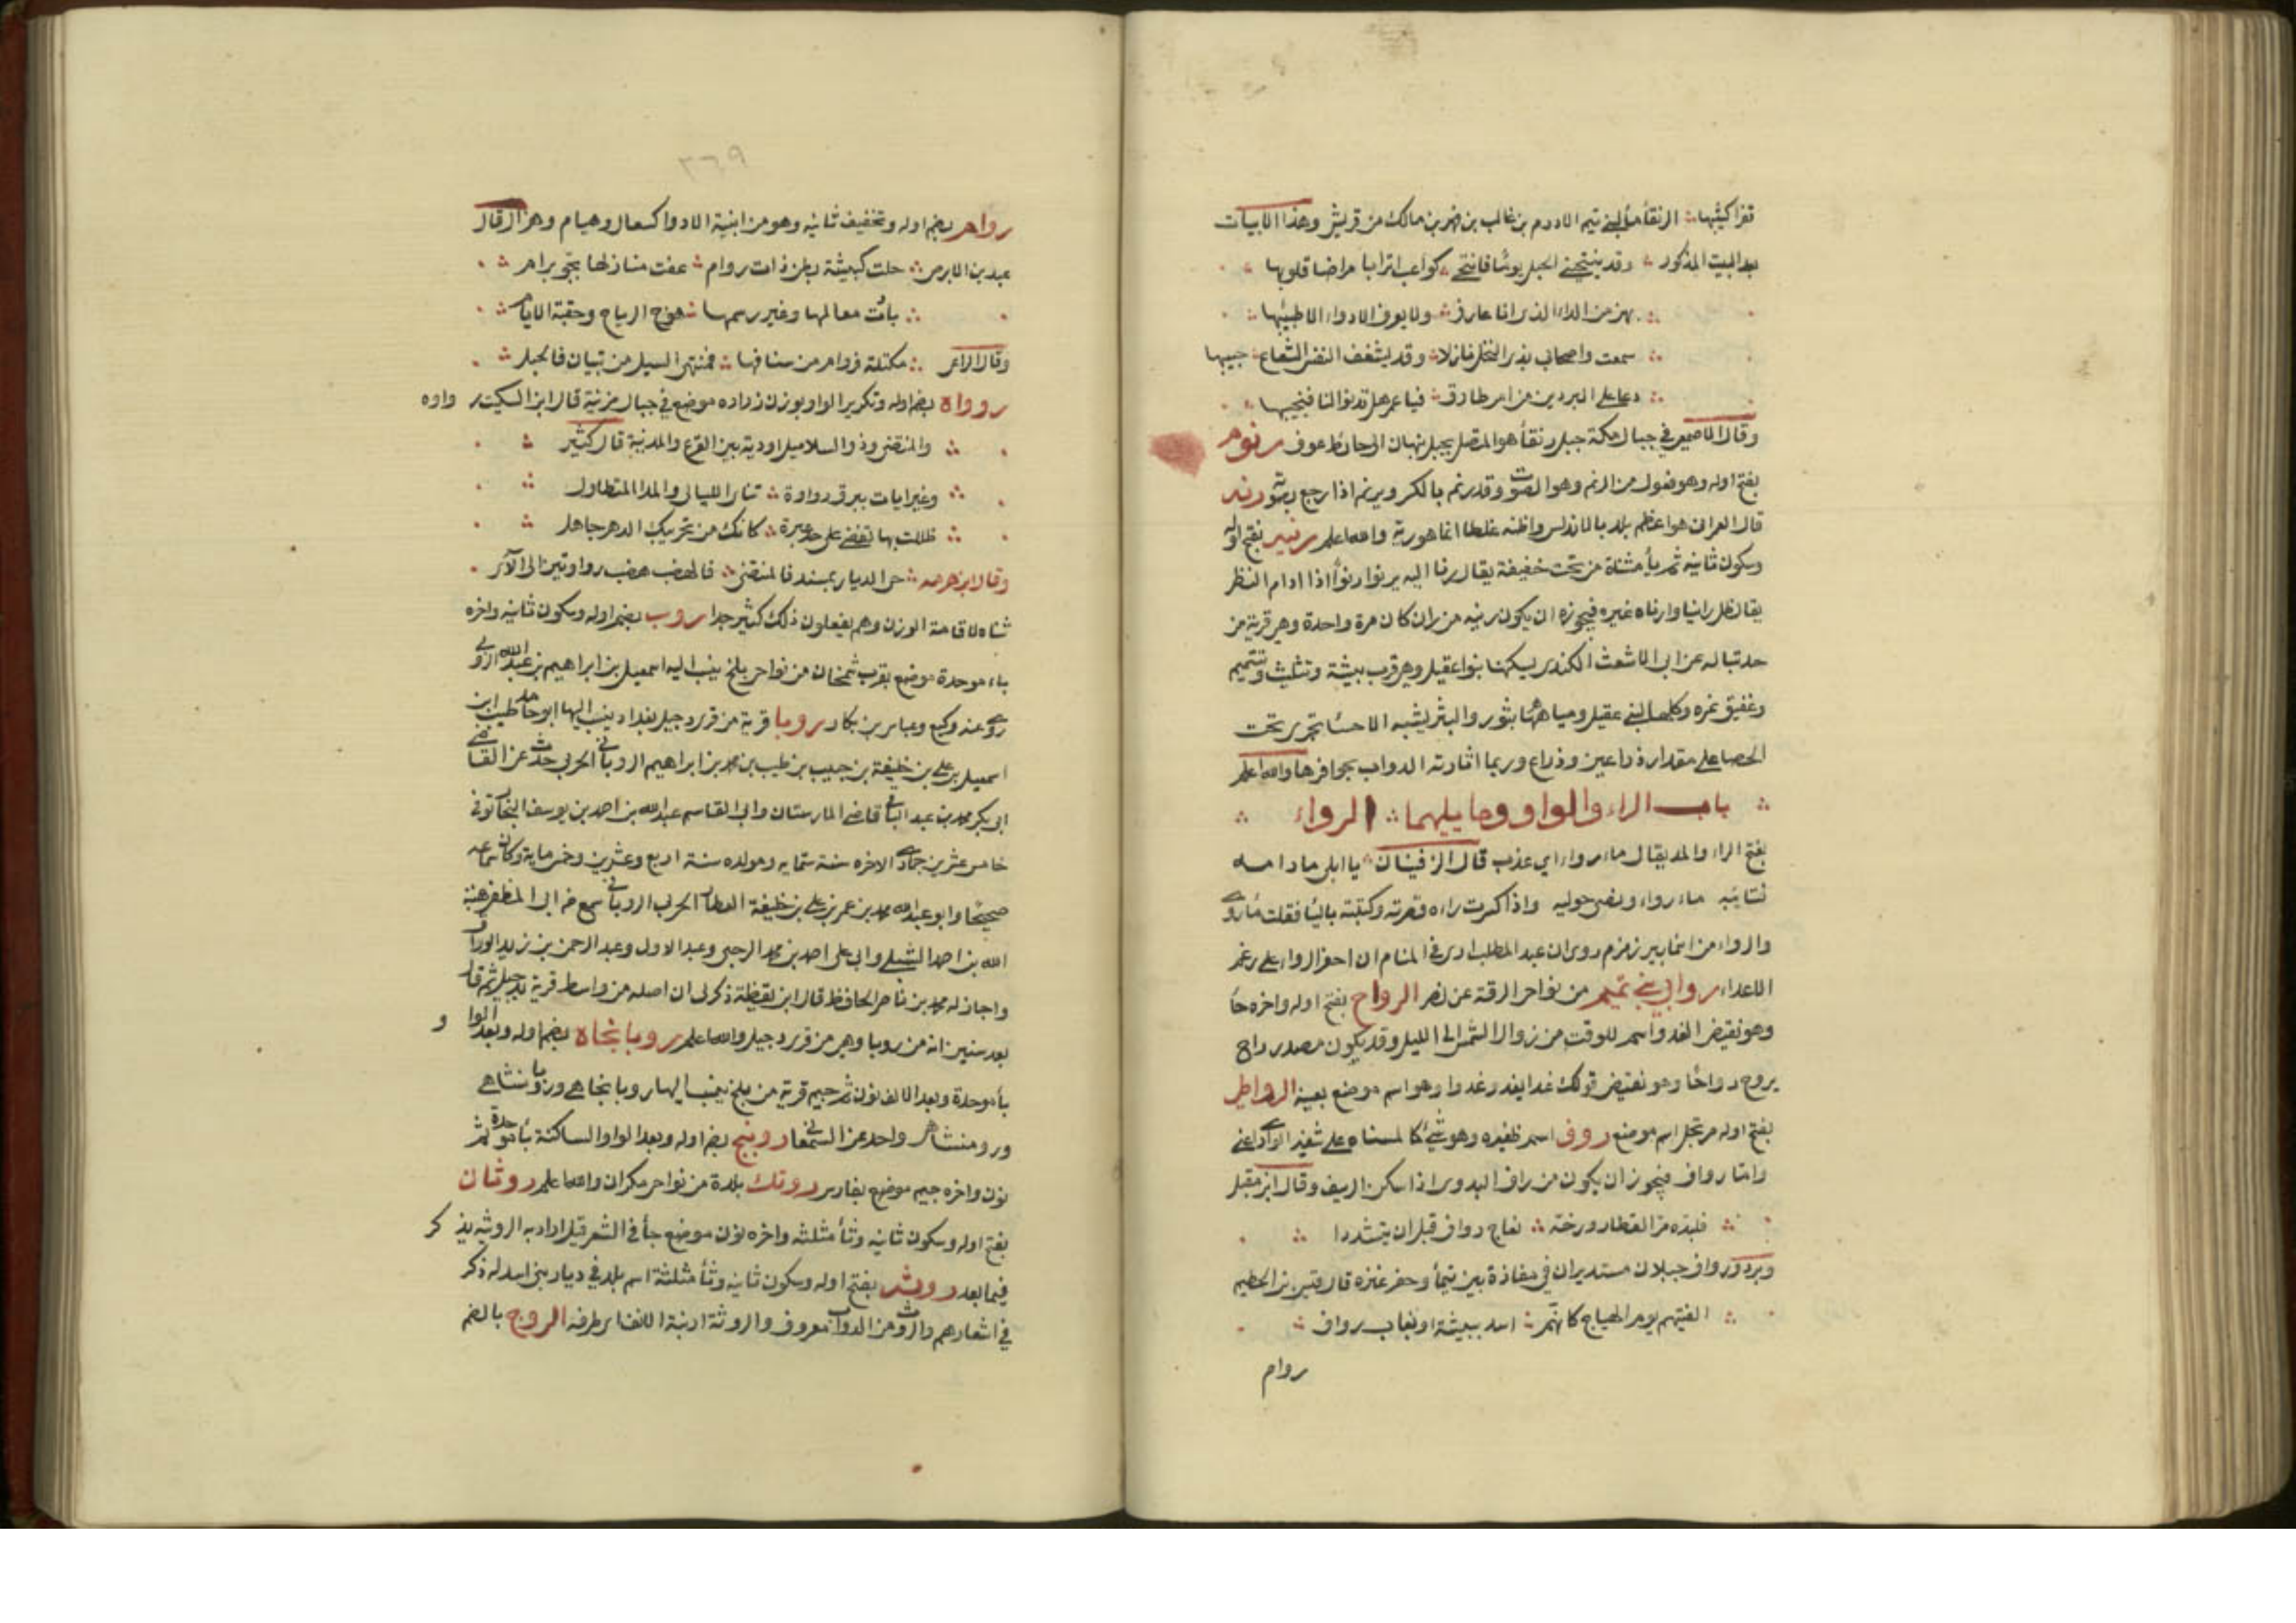 قفرا كثيبها الرنقاء ماء لبني تيم الادرم بن غالب بن فهر بن مالك من قريش وهذا الابيات
بعد البيت المذكور وقد ينتحيني الخيل يوما فانتحي كواعب اترابا مراضا قلوبها
بهن من الداء الذي انا عارف ولا يعرف الادواء الا طبيبها
سمعت واصحابي بذي النخل نازلا وقد يشغف النفس الشعاع حبيبها
دعا على البردين من ام طارق فيا عمر هل تدنوا لنا فنجيبها
وقال الاصمعي في جبال مكة جبل رنقاء هو المتصل بجبل نبهان الى حائط عوف رنوم
بفتح اوله وهو فعول من الرنم وهو الصوت وقد رنم بالكسر ويرنم اذا رجع صوته رنه
قال العمراني هو اعظم بلد بالاندلس واظنه غلطا انما هو رية والله اعلم رنيه بفتح اوله
وسكون ثانيه ثم ياء مثناة من تحت خفيفة يقال رنا اليه يرنوا رنوا اذا ادام النظر
يقال ظل رانيا وارناه غيره فيجوز ان يكون رنيه من ران كان مرة واحدة وهي قرية من
حد تباله عن ابي الاشعث الكندي يسكنها بنوا عقيل وهي قرب بيشة وتثليث وتتميم
وعقيق تمره وكلها لبني عقيل ومياهها بثور والبثر يشبه الاحساء تجري تحت
الحصا على مقدار ذراعين وذراع وربما اثارته الدواب بحوافرها والله اعلم
باب الراء والواو وما يليهما الرواء
بفتح الراء والمد يقال ماء رواء اي عذب قال الزفيان يا ابلي ما ذامه
فتابيه ماء رواء ونصي حوليه واذا كسرت راءه قصرته وكتبته بالياء فقلت ماء روى
والرواء من اسماء بير زمزم روى ان عبد المطلب ارى في المنام ان احفر الرواء على رغم
الاعداء روابي بني تميم من نواحي الرقة عن نصر الرواح بفتح اوله واخره حاء
وهو نقيض الغدو اسم للوقت من زوال الشمس الى الليل وقد يكون مصدر راح
يروح رواحا وهو نقيض قولك غدا يغدو غدوا وهو اسم موضع بعينه الرواطي
بفتح اوله مرتجل اسم موضع روف اسم ظفيره وهو شيء كالمسناه على شفير الوادي اعني
وامّا رواف فيجوز ان يكون من راف البدوي اذا سكن الريف وقال ابن مقبل
فلبّده مر القطار ورخه نعاج رواف قبل ان يتشددا
وبرد ورواف جبلان مستديران في مفازة بين تيماء وحفر عنزه قال قيس بن الخطيم
الفيتهم يوم الهياج كانهم اسد ببيشة او بغاب رواف
روام
٣٦٩
روام بضم اوله وتخفيف ثانيه وهو من ابنية الادوا كسعال وهيام وهزال قال
عبيد بن الابرص حلت كبيشة بطن ذات روام عفت منازلها بجو برام
بادت معالمها وغير رسمها هوج الرياح وحقبة الايام
وقال الراعي مكتلة فروام من مساكنها فمنتهى السيل من بنيان فالحبل
رواوة بضم اوله وتكرير الواو بوزن زراره موضع في جبال مزنية قال ابن السكيت رواوه
والمنتضى وذو السلاسل اودية بين الفرع والمدنية قال كثير
وغير ايات ببرق رواوة تناءى الليالي والمدا المتطاول
ظللت بها تغضي على حد عبرة كانك من تجريبك الدهر جاهل
وقال ابن هرمه حي الديار بمنشد فالمنتضى فالهضب هضب رواوتين الى لأى
ثناه لاقامة الوزن وهم يفعلون ذلك كثير جدا روب بضم اوله وسكون ثانيه واخره
باء موحدة موضع بقرب سمنجان من نواحي بلخ ينسب اليه اسمعيل بن ابراهيم بن عبد الله الروبي
روى عنه وكيع وعباس بن بكار روبا قرية من قرى دجيل بغداد ينسب اليها ابو حامد طيب ابن
اسمعيل بن علي بن خليفة بن حبيب بن طيب بن محمد بن ابراهيم الروباني الحربي حدث عن القاضي
ابي بكر محمد بن عبد الباقي قاضي المارستان وابي القاسم عبد الله بن احمد بن يوسف النجاتوني
خامس عشرين جمادى الاخره سنة ستمايه ومولده سنة اربع وعشرين وخمس ماية وكان سماعه
صحيحا وابو عبد الله محمد بن عمر بن علي بن خليفة العطار الحربي الروباني سمع من ابي المظفر هبة
الله بن احمد الشبلي وابي علي احمد بن محمد الرحبي وعبد الاول وعبد الرحمن بن زيد الوراق
واجاز له محمد بن ناصر الحافظ قال ابن نقطة ذكر لي ان اصله من واسط قرية بدجيل ثم قال
بعد سنين انه من روبا وهي من قرى دجيل والله اعلم روبانجاه بضم اوله وبعد الواو
باء موحدة وبعد الالف نون ثم جيم قرية من بلخ ينسب اليها روبانجاهي وربما نشاهي
ورومنشاهي واحد عن السمعاني روبنج بضم اوله وبعد الواو الساكنة باء موحدة ثم
نون واخره جيم موضع بفارس روتك بلدة من نواحي مكران والله اعلم روثان
بفتح اوله وسكون ثانيه وثاء مثلثه واخره نون موضع جاء في الشعر قيل اراد به الروثه يذكر
فيما بعد روث بفتح اوله وسكون ثانيه وثاء مثلثة اسم بلد في ديار بني اسد له ذكر
في اشعارهم والروث من الدواب معروف والروثة ارنبة الانف اي طرفه الروج بالضم